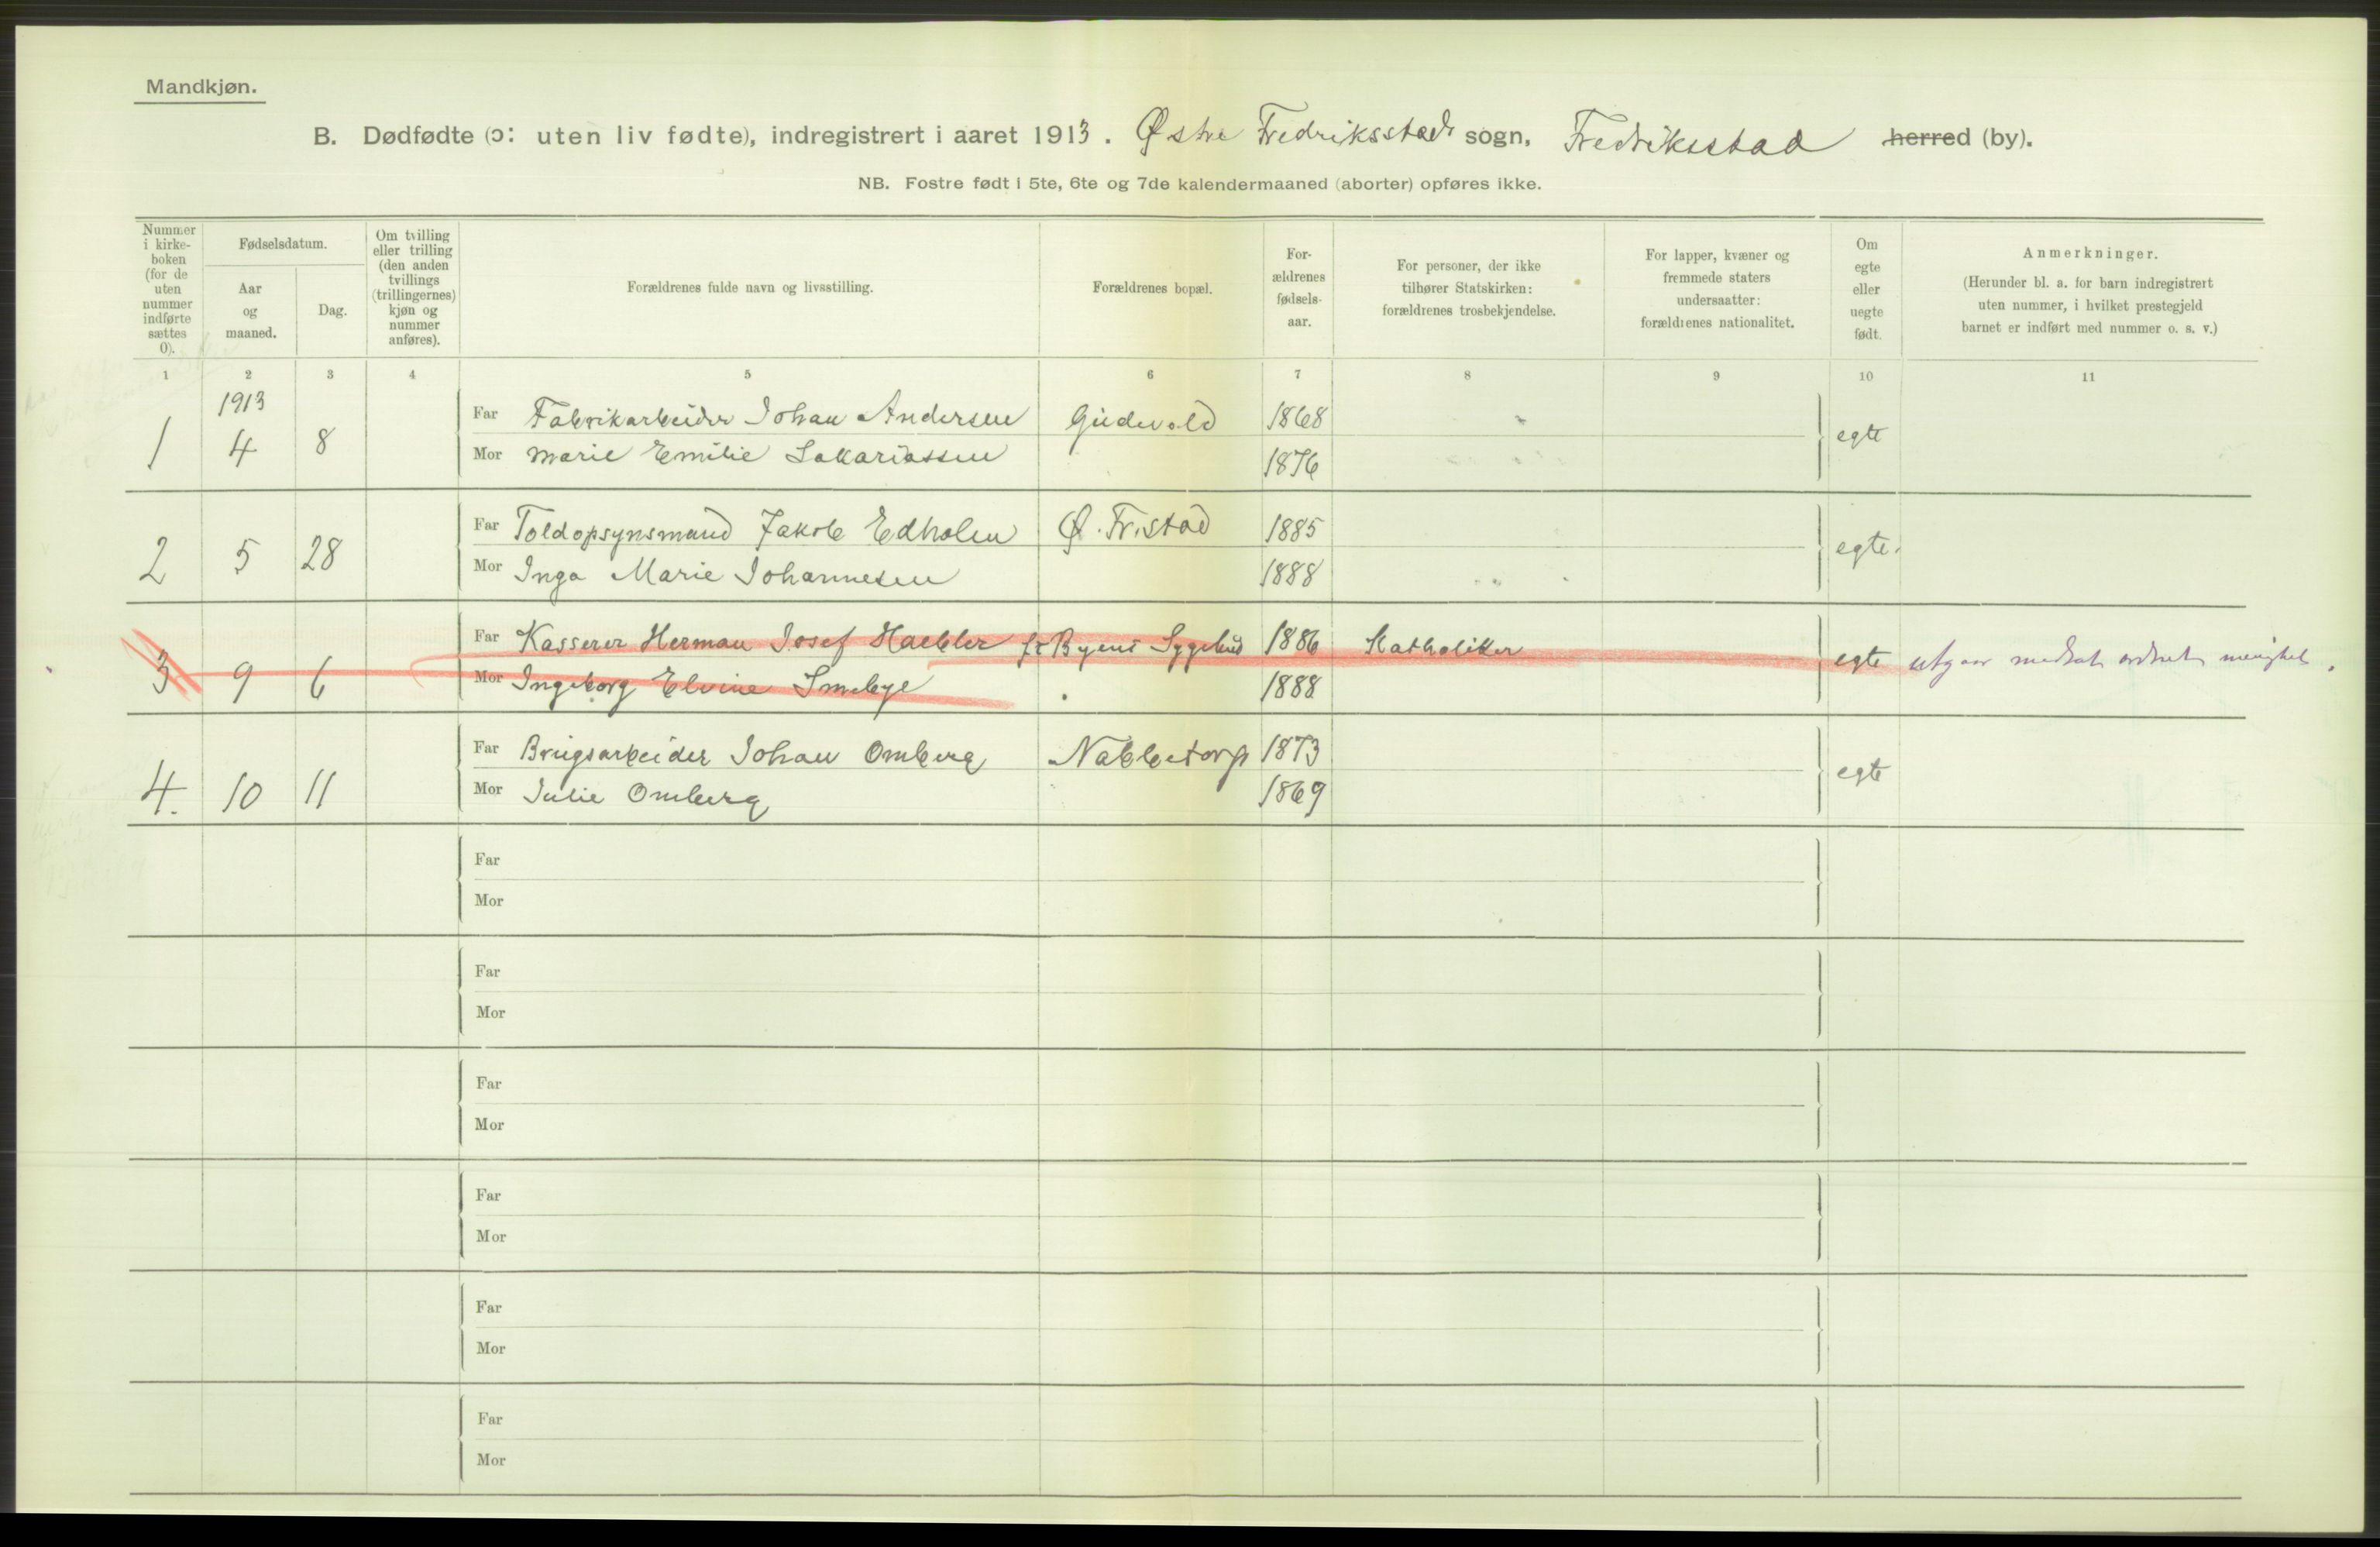 Mandkjøn.
B. Dødfødte (ɔ: uten liv fødte), indregistrert i aaret 1913. Østre Fredriksstads sogn, Fredriksstad herred (by).
NB. Fostre født i 5te, 6te og 7de kalendermaaned (aborter) opføres ikke.
Nummer i kirke-boken (for de uten nummer indførte sættes 0).
Fødselsdatum.
Aar og maaned.
Dag.
Om tvilling eller trilling (den anden tvillings (trillingernes) kjøn og nummer anføres).
Forældrenes fulde navn og livsstilling.
Forældrenes bopæl.
For-ældrenes fødsels-aar.
For personer, der ikke tilhører Statskirken: forældrenes trosbekjendelse.
For lapper, kvæner og fremmede staters undersaatter: forældrenes nationalitet.
Om egte eller uegte født.
Anmerkninger.
(Herunder bl. a. for barn indregistrert uten nummer, i hvilket prestegjeld barnet er indført med nummer o. s. v.)
1 2 3 4 5 6 7 8 9 10 11
1913
1 4 8 Far Fabrikarbeider Johan Andersen Gudevold 1868 egte
Mor Marie Emilie Sakariassen 1876
2 5 28 Far Toldopsynsmand Jakob Edholm Ø. Fr.stad 1885 egte.
Mor Inga Marie Johannesen 1888
3 9 6 Far Kasserer Herman Josef Haebler Byens Sygehus 1886 Katholiker egte utgaar
Mor Ingeborg Elvine Smebye 1888
4. 10 11 Far Brugsarbeider Johan Omberg Nabbetorp 1873 egte
Mor Julie Omberg 1869
Far
Mor
Far
Mor
Far
Mor
Far
Mor
Far
Mor
Far
Mor